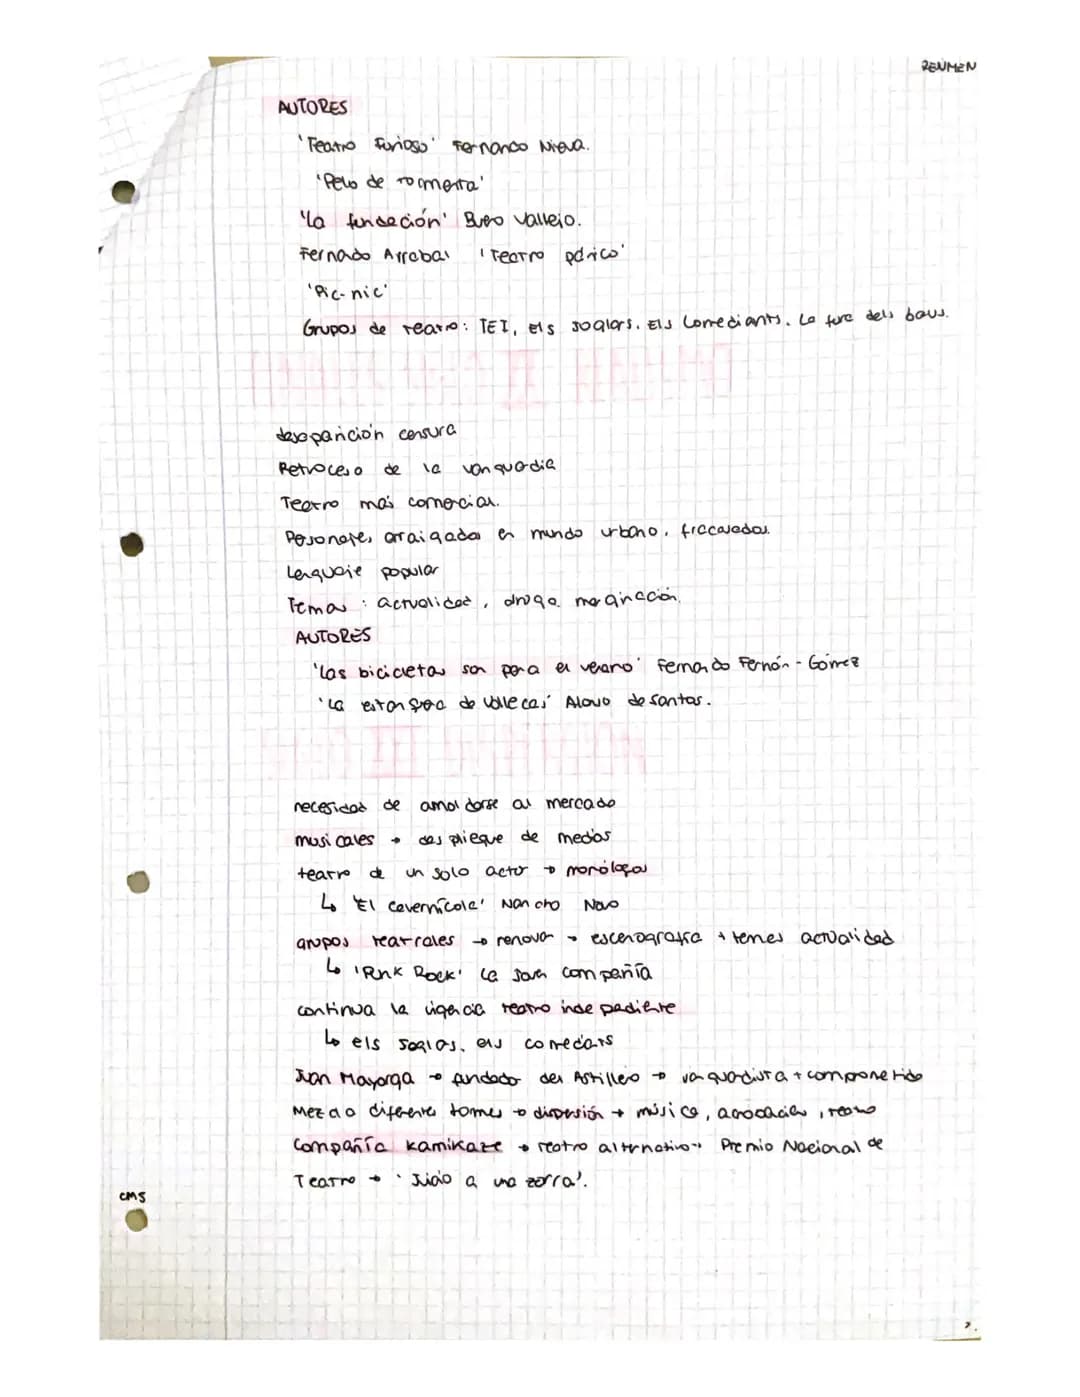 RENMEN
AUTORES
'Teatro Furioso' Fernando Nieva.
'Pelo de tormenta'
'La fundación' Buero Vallejo.
Fernado Arrabal 'Teatro pánico'
'Pic-nic'
Grupos de teatro: TEI, els joglars. Els Comediants. La fura dels baus.
desaparición censura
Retroceso de la vanguardia
Teatro más comercial.
Personajes arraigados en mundo urbano, fracasados.
Lenguaje popular
Temas: actualidad, droga, marginación.
AUTORES
'las bicicletas son para el verano' Fernando Fernán-Gómez
'La estanquera de Vallecas' Alonso de Santos.
necesidad de amoldarse al mercado
musicales → despliegue de medios
teatro de un solo actor → monólogos
↳ 'El cavernícola' Nancho Novo
grupos teatrales → renovan → escenografía + temas actualidad
↳ 'Punk Rock' La Joven compañía
continua la vigencia teatro independiente
↳ els joglars, els comediants
Juan Mayorga → fundador del Astillero → vanguardista + comprometido
Mezcla diferentes formas → dispersión → música, acrobacias, teatro
Compañía Kamikaze → teatro alternativo → Premio Nacional de
Teatro → 'Juicio a una zorra'.
CMS